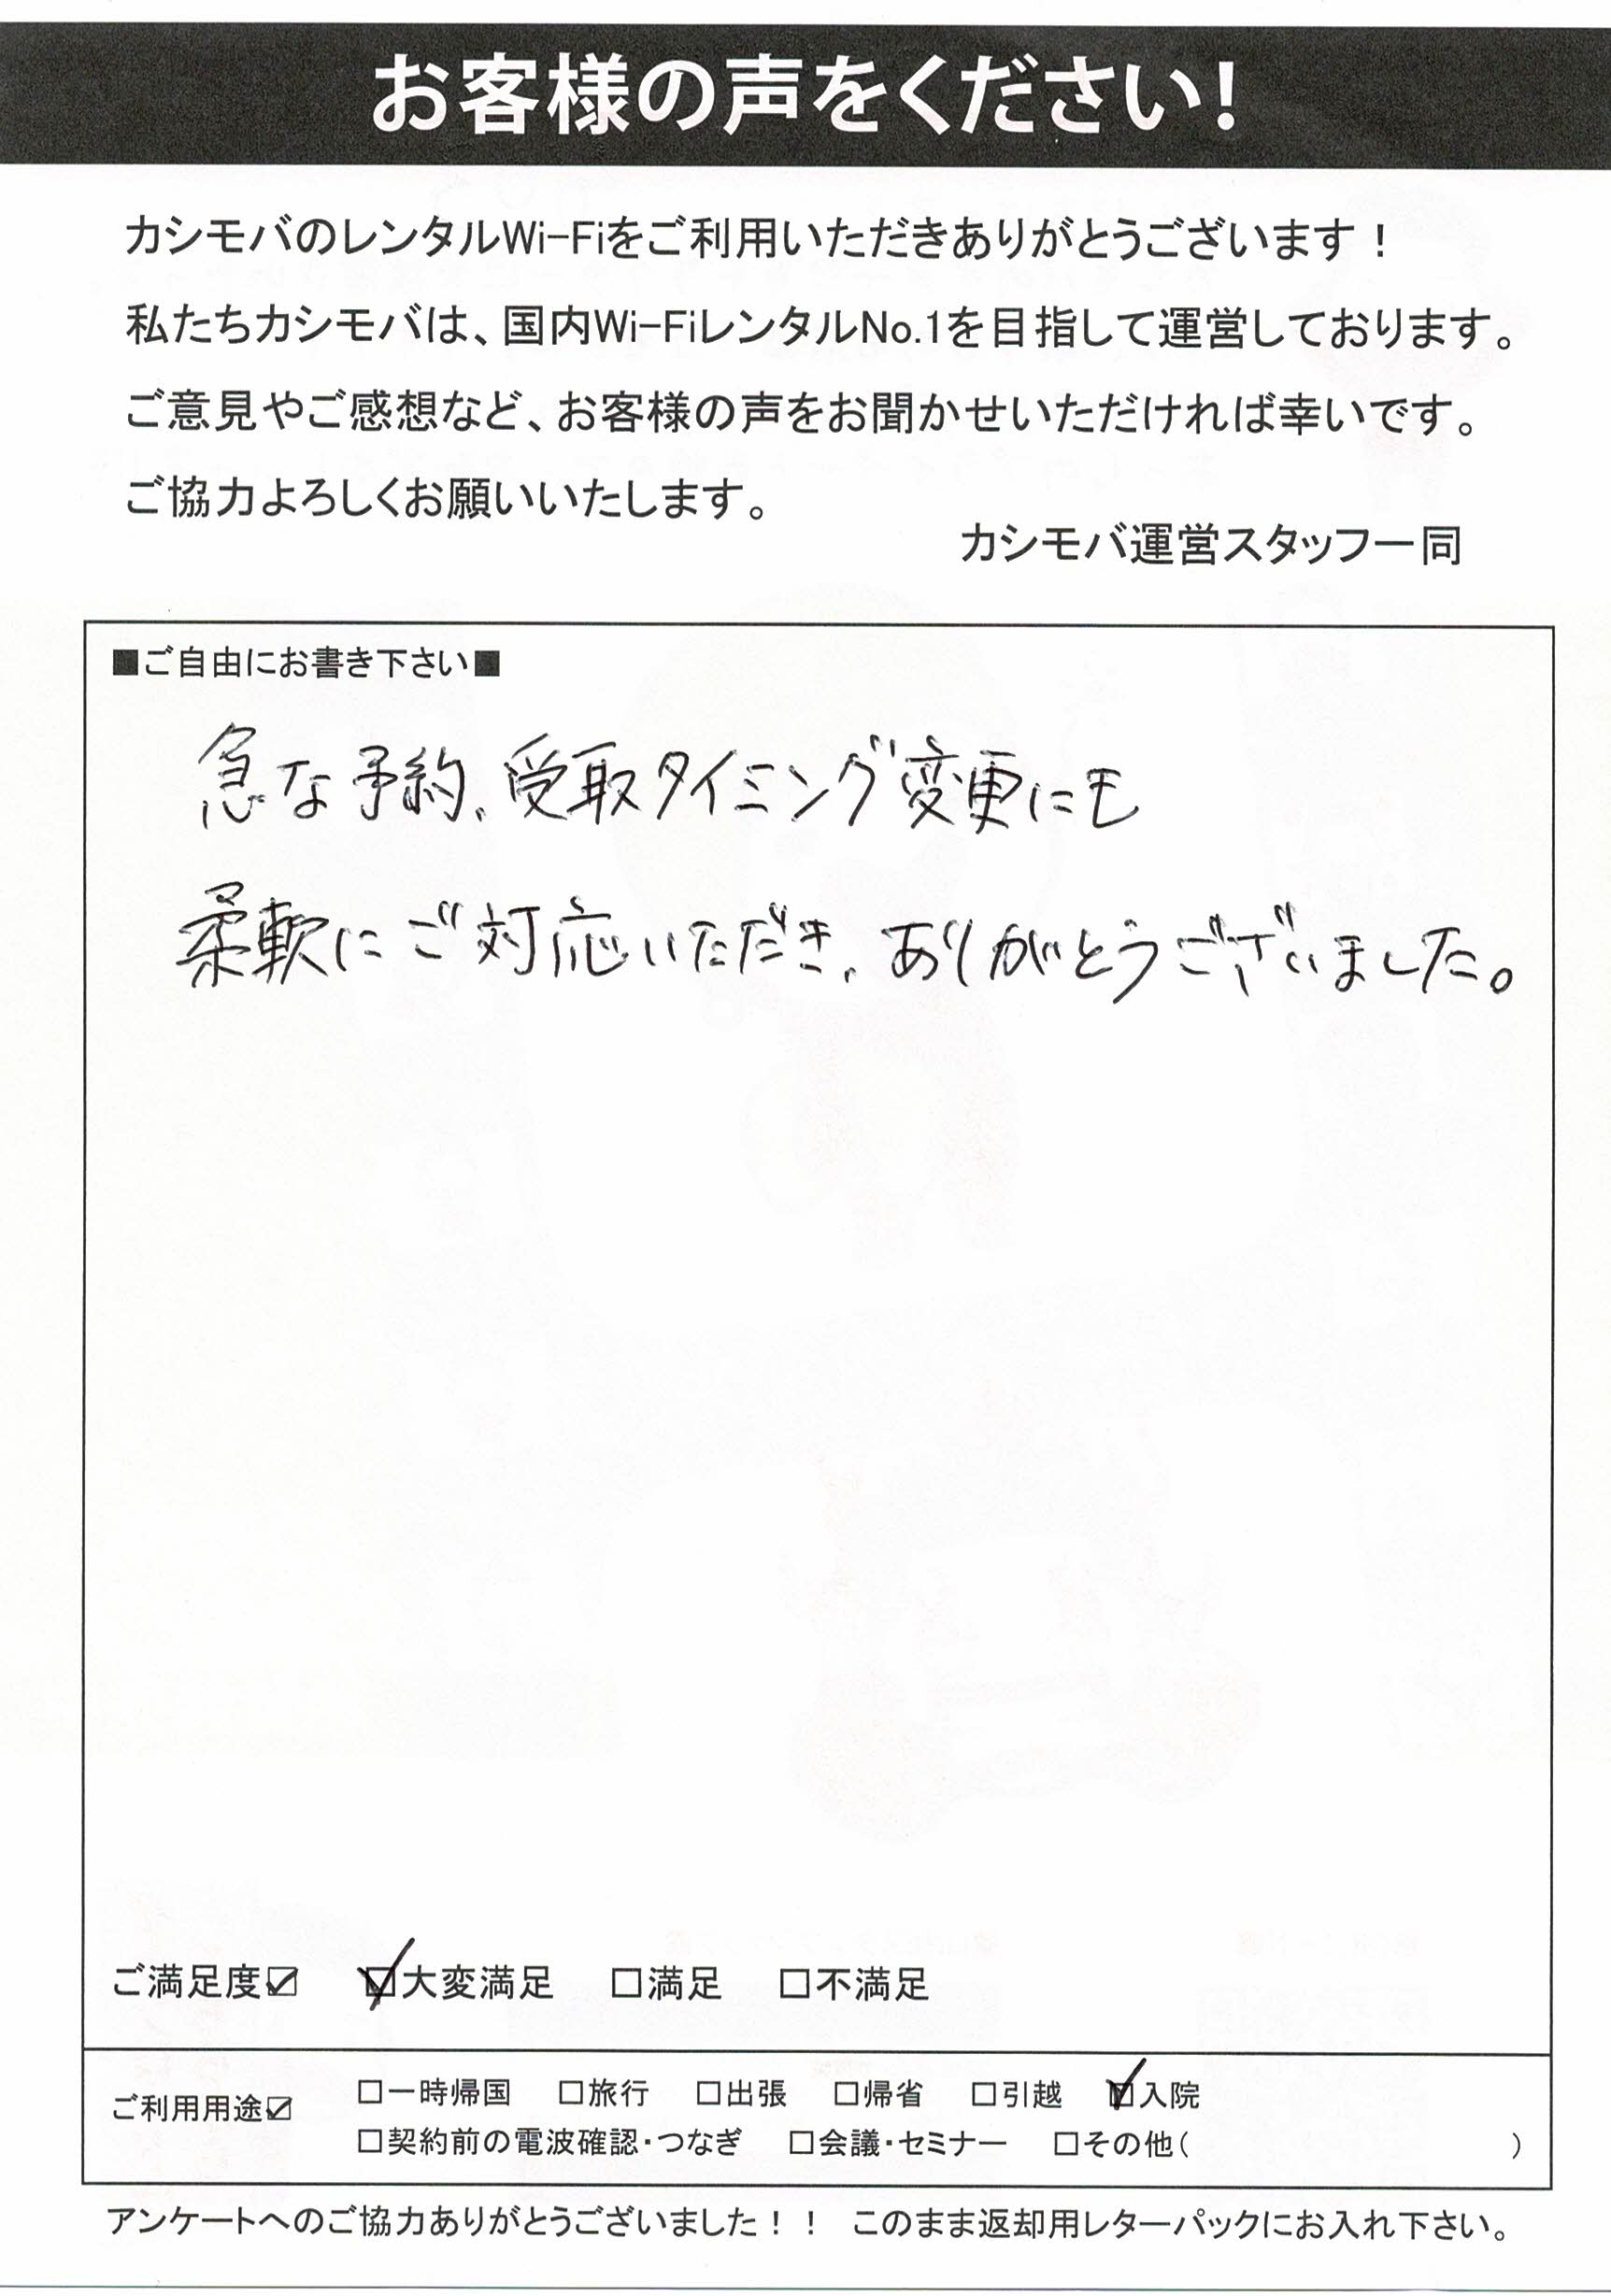 お客様の声をください!
カシモバのレンタルWi-Fiをご利用いただきありがとうございます！
私たちカシモバは、国内Wi-FiレンタルNo.1を目指して運営しております。
ご意見やご感想など、お客様の声をお聞かせいただければ幸いです。
ご協力よろしくお願いいたします。
カシモバ運営スタッフ一同
■ご自由にお書き下さい■
急な予約、受取タイミング変更にも
柔軟にご対応いただき、ありがとうございました。
ご満足度☑ ☑大変満足 □満足 □不満足
ご利用用途☑ □一時帰国 □旅行 □出張 □帰省 □引越 ☑入院
□契約前の電波確認・つなぎ □会議・セミナー □その他( )
アンケートへのご協力ありがとうございました！！ このまま返却用レターパックにお入れ下さい。